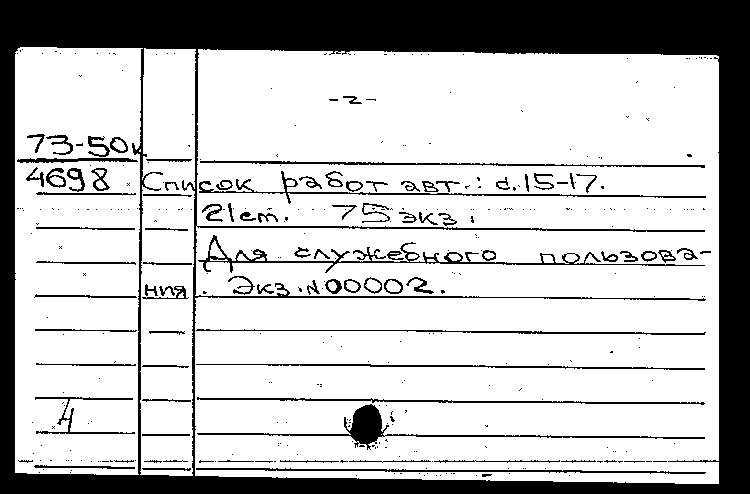 -2-
73-50к
4698 Список работ авт.: с.15-17.
21cm. 75 экз.
Для служебного пользова-
ния. Экз.N00002.
4